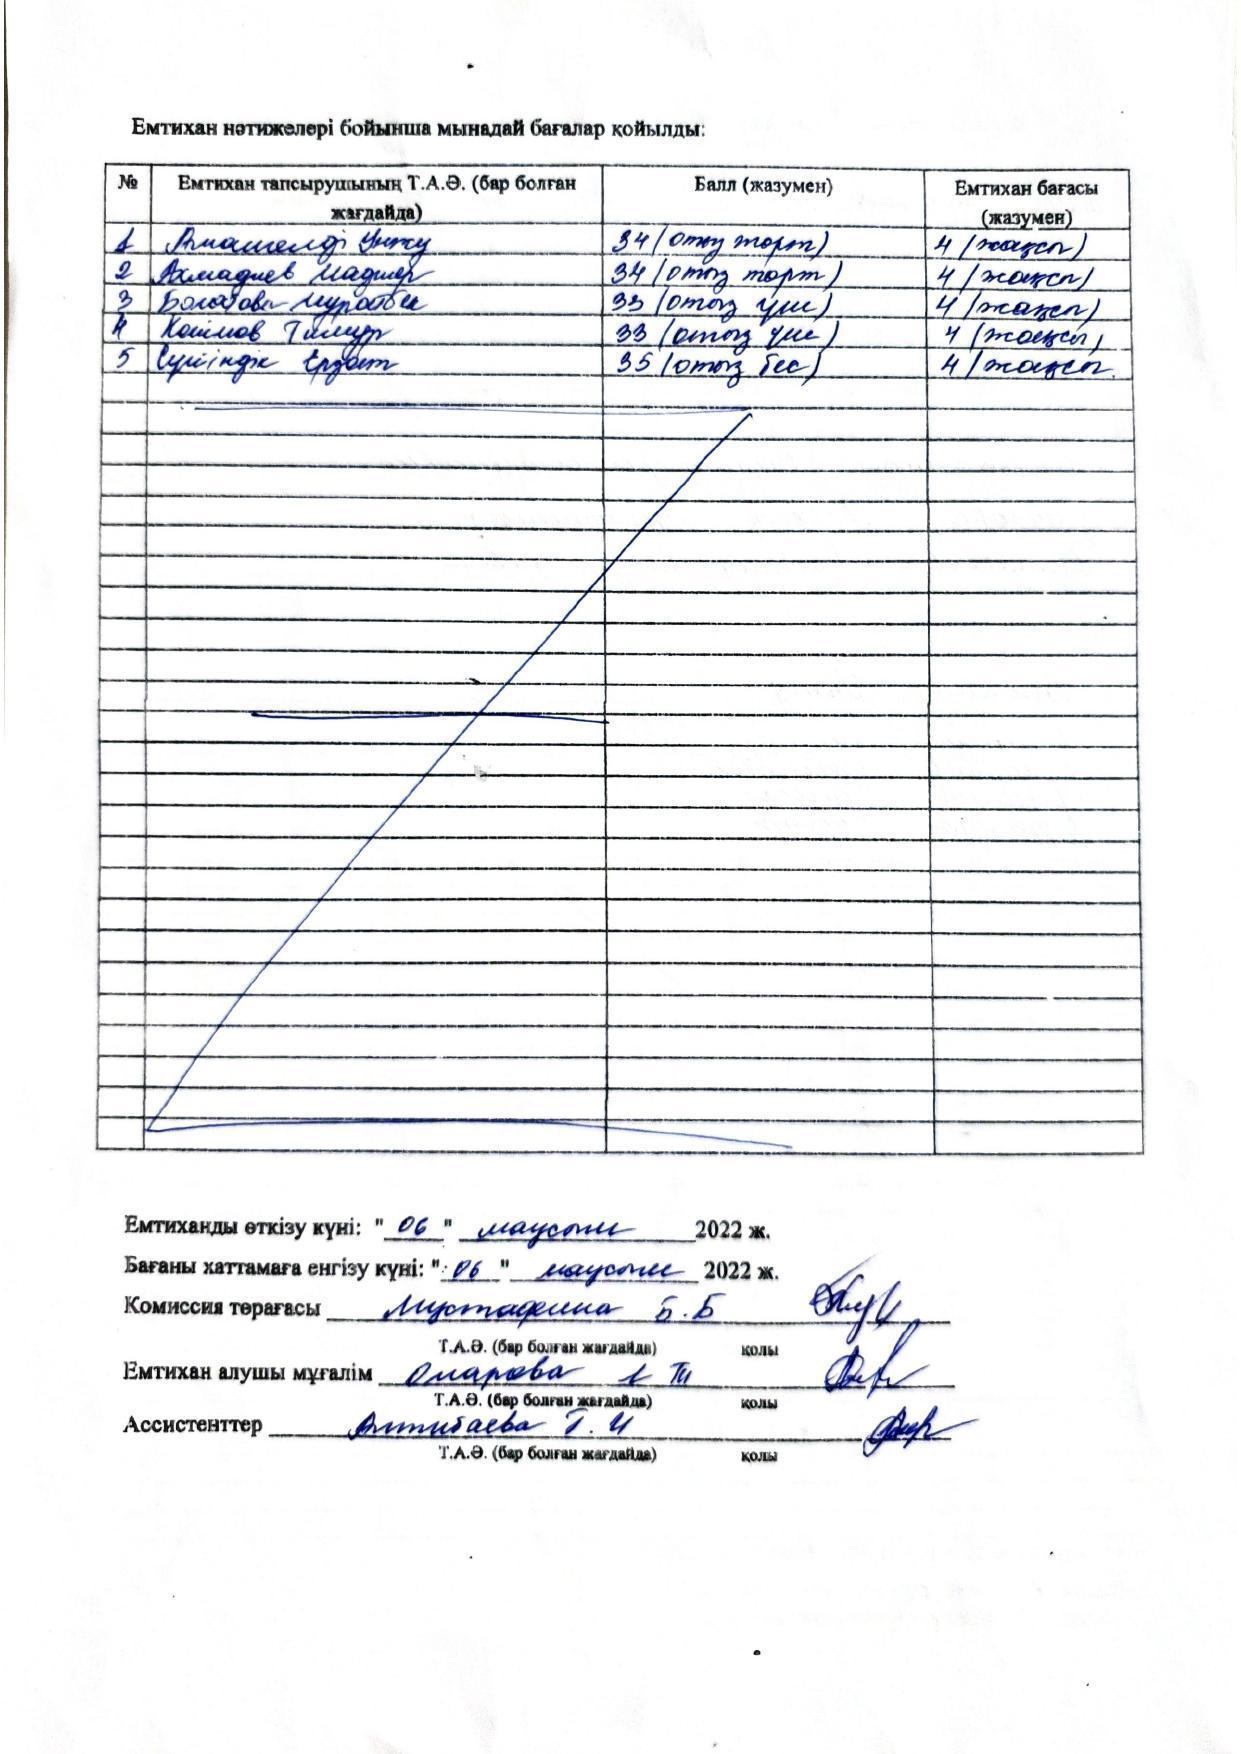 Емтихан нәтижелері бойынша мынадай бағалар қойылды:
№ Емтихан тапсырушының Т.А.Ә. (бар болған жағдайда) Балл (жазумен) Емтихан бағасы (жазумен)
1 34 (отыз төрт) 4 (жақсы)
2 Ахмадиев 34 (отыз төрт) 4 (жақсы)
3 33 (отыз үш) 4 (жақсы)
4 Тимур 33 (отыз үш) 4 (жақсы)
5 Сүйіндік 35 (отыз бес) 4 (жақсы
Емтиханды өткізу күні: "06" маусым 2022 ж.
Бағаны хаттамаға енгізу күні: "06" маусым 2022 ж.
Комиссия төрағасы Мустафина Б.Б
Т.А.Ә. (бар болған жағдайда) қолы
Емтихан алушы мұғалім Омарова
Т.А.Ә. (бар болған жағдайда) қолы
Ассистенттер
Т.А.Ә. (бар болған жағдайда) қолы